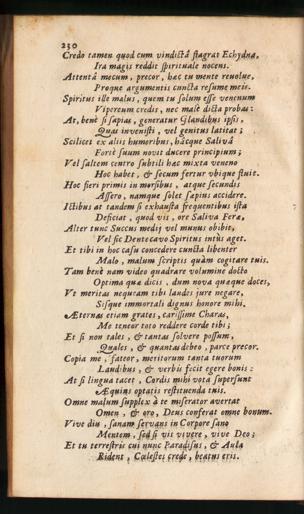 230
Credo tamen quod cum vindictâ flagrat Echydna,
Ira magis reddit spirituale nocens.
Attentâ mecum, precor, hac tu mente revolve,
Proque argumentis cuncta resume meis.
Spiritus ille malus, quem tu solum esse venenum
Vipereum credis, nec male dicta probas:
At, benè si sapias, generatur Glandibus ipsis,
Quas invenisti, vel genitus latitat;
Scilicet ex aliis humoribus, hâcque Salivâ
Fortè suum novit ducere principium;
Vel saltem centro subtili hac mixta veneno
Hoc habet, & secum fertur ubique sluit.
Hoc fieri primis in morsibus, atque secundis
Assero, namque solet sapius accidere.
Ictibus at tandem si exhausta frequentibus ista
Deficiat, quod vis, ore Saliva Feræ,
Alter tunc Succus medij vel munus obibit,
Vel sic Dentecavo Spiritus intùs aget.
Et tibi in hoc casu concedere cuncta libenter
Malo, malum scriptis quàm cogitare tuis.
Tam benè nam video quadrare volumine docto
Optima quæ dicis, dum nova quæque doces,
Vt meritas nequeam tibi laudes jure negare,
Sisque immortali dignus honore mihi.
Æternas etiam grates, carissime Charas,
Me teneor toto reddere corde tibi;
Et si non tales, & tantas solvere possum,
Quales, & quantas debeo, parce precor.
Copia me, fateor, meritorum tanta tuorum
Laudibus, & verbis fecit egere bonis:
At si lingua tacet, Cordis mihi vota supersunt
Æquius optatis restituenda tuis.
Omne malum supplex à te miserator avertat
Omen, & oro, Deus conferat omne bonum.
Vive diu, sanam servans in Corpore sano
Mentem, sed si vis vivere, vive Deo;
Et tu terrestris cui nunc Paradisus, & Aula
Rident, Cœlestes crede, beatus eris.